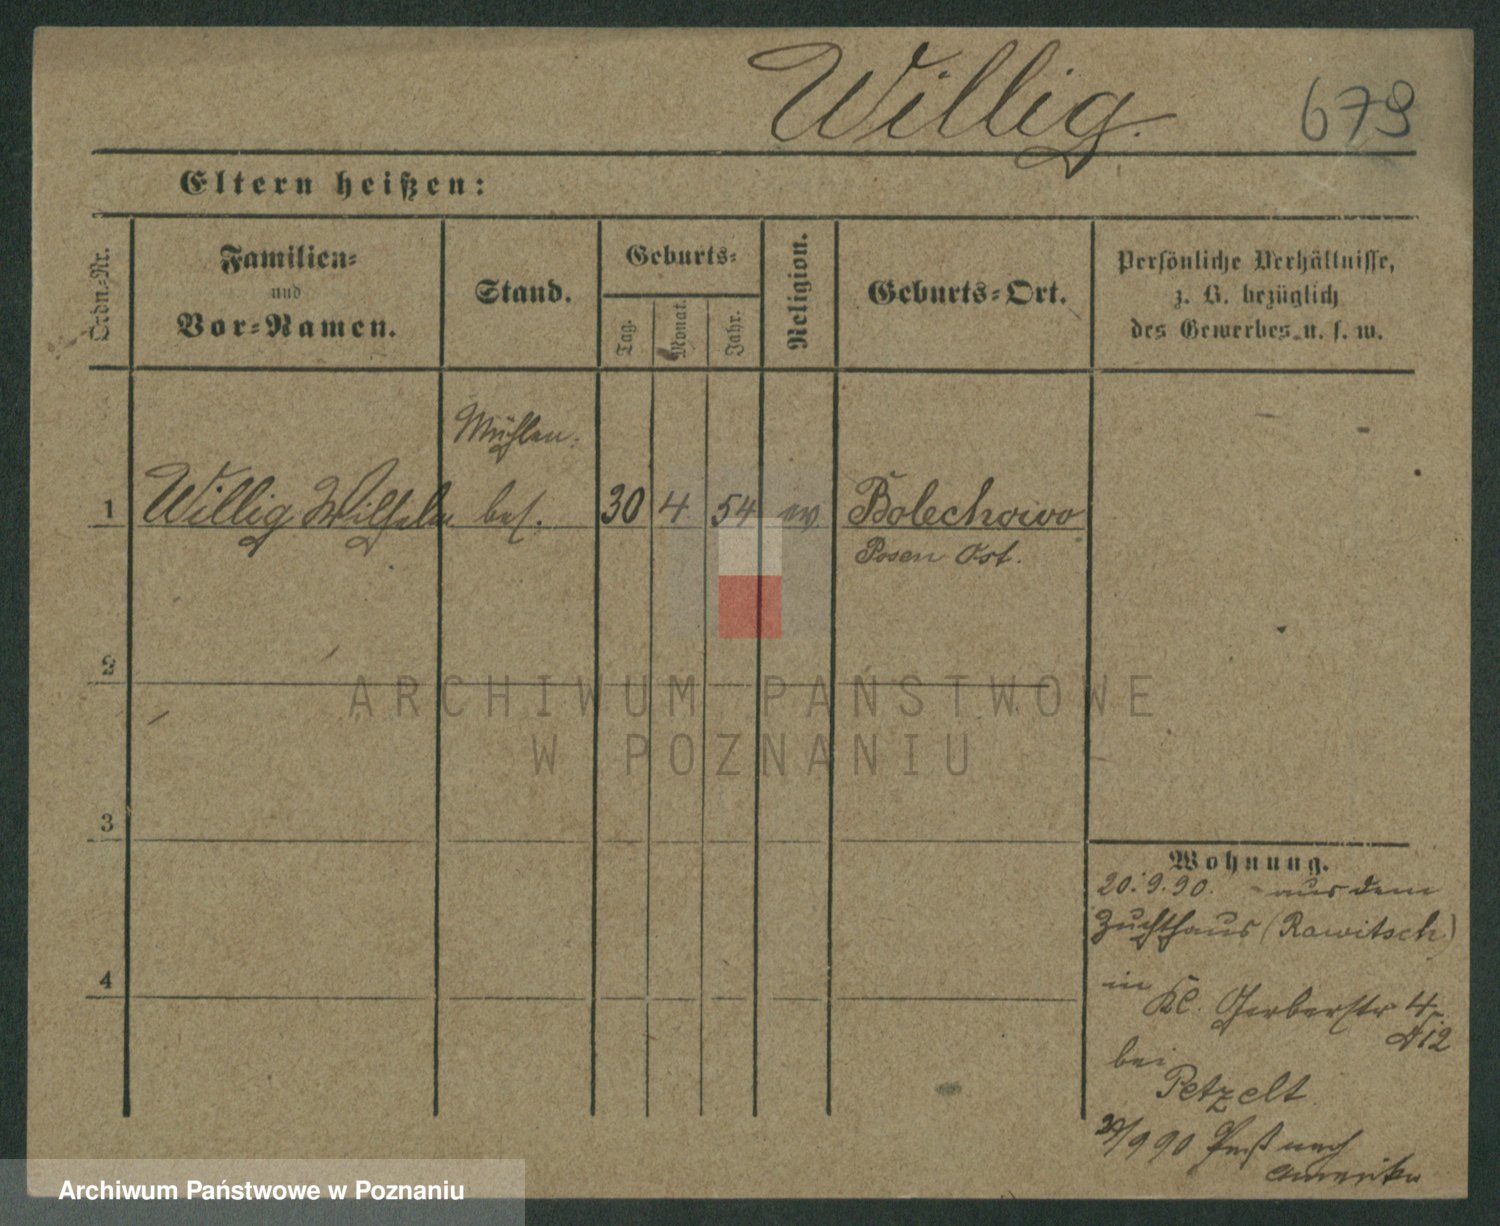 Willig. 679
Eltern heißen:
Ordn.-Nr.
Familien-
und
Vor-Namen.
Stand.
Geburts-
Tag.
Monat.
Jahr.
Religion.
Geburts-Ort.
Persönliche Verhältnisse,
z. B. bezüglich
des Gewerbes u. s. w.
Mühlen-
1 Willig Wilhelm bes. 30 4 54 ev Bolechowo
Posen Ost.
2
ARCHIWUM PAŃSTWOWE
W POZNANIU
3
Wohnung.
20.9.90. aus dem
Zuchthaus (Rawitsch)
4
in Kl. Gerberstr 4
bei
Petzelt
/9 90 nach
Amerika
Archiwum Państwowe w Poznaniu